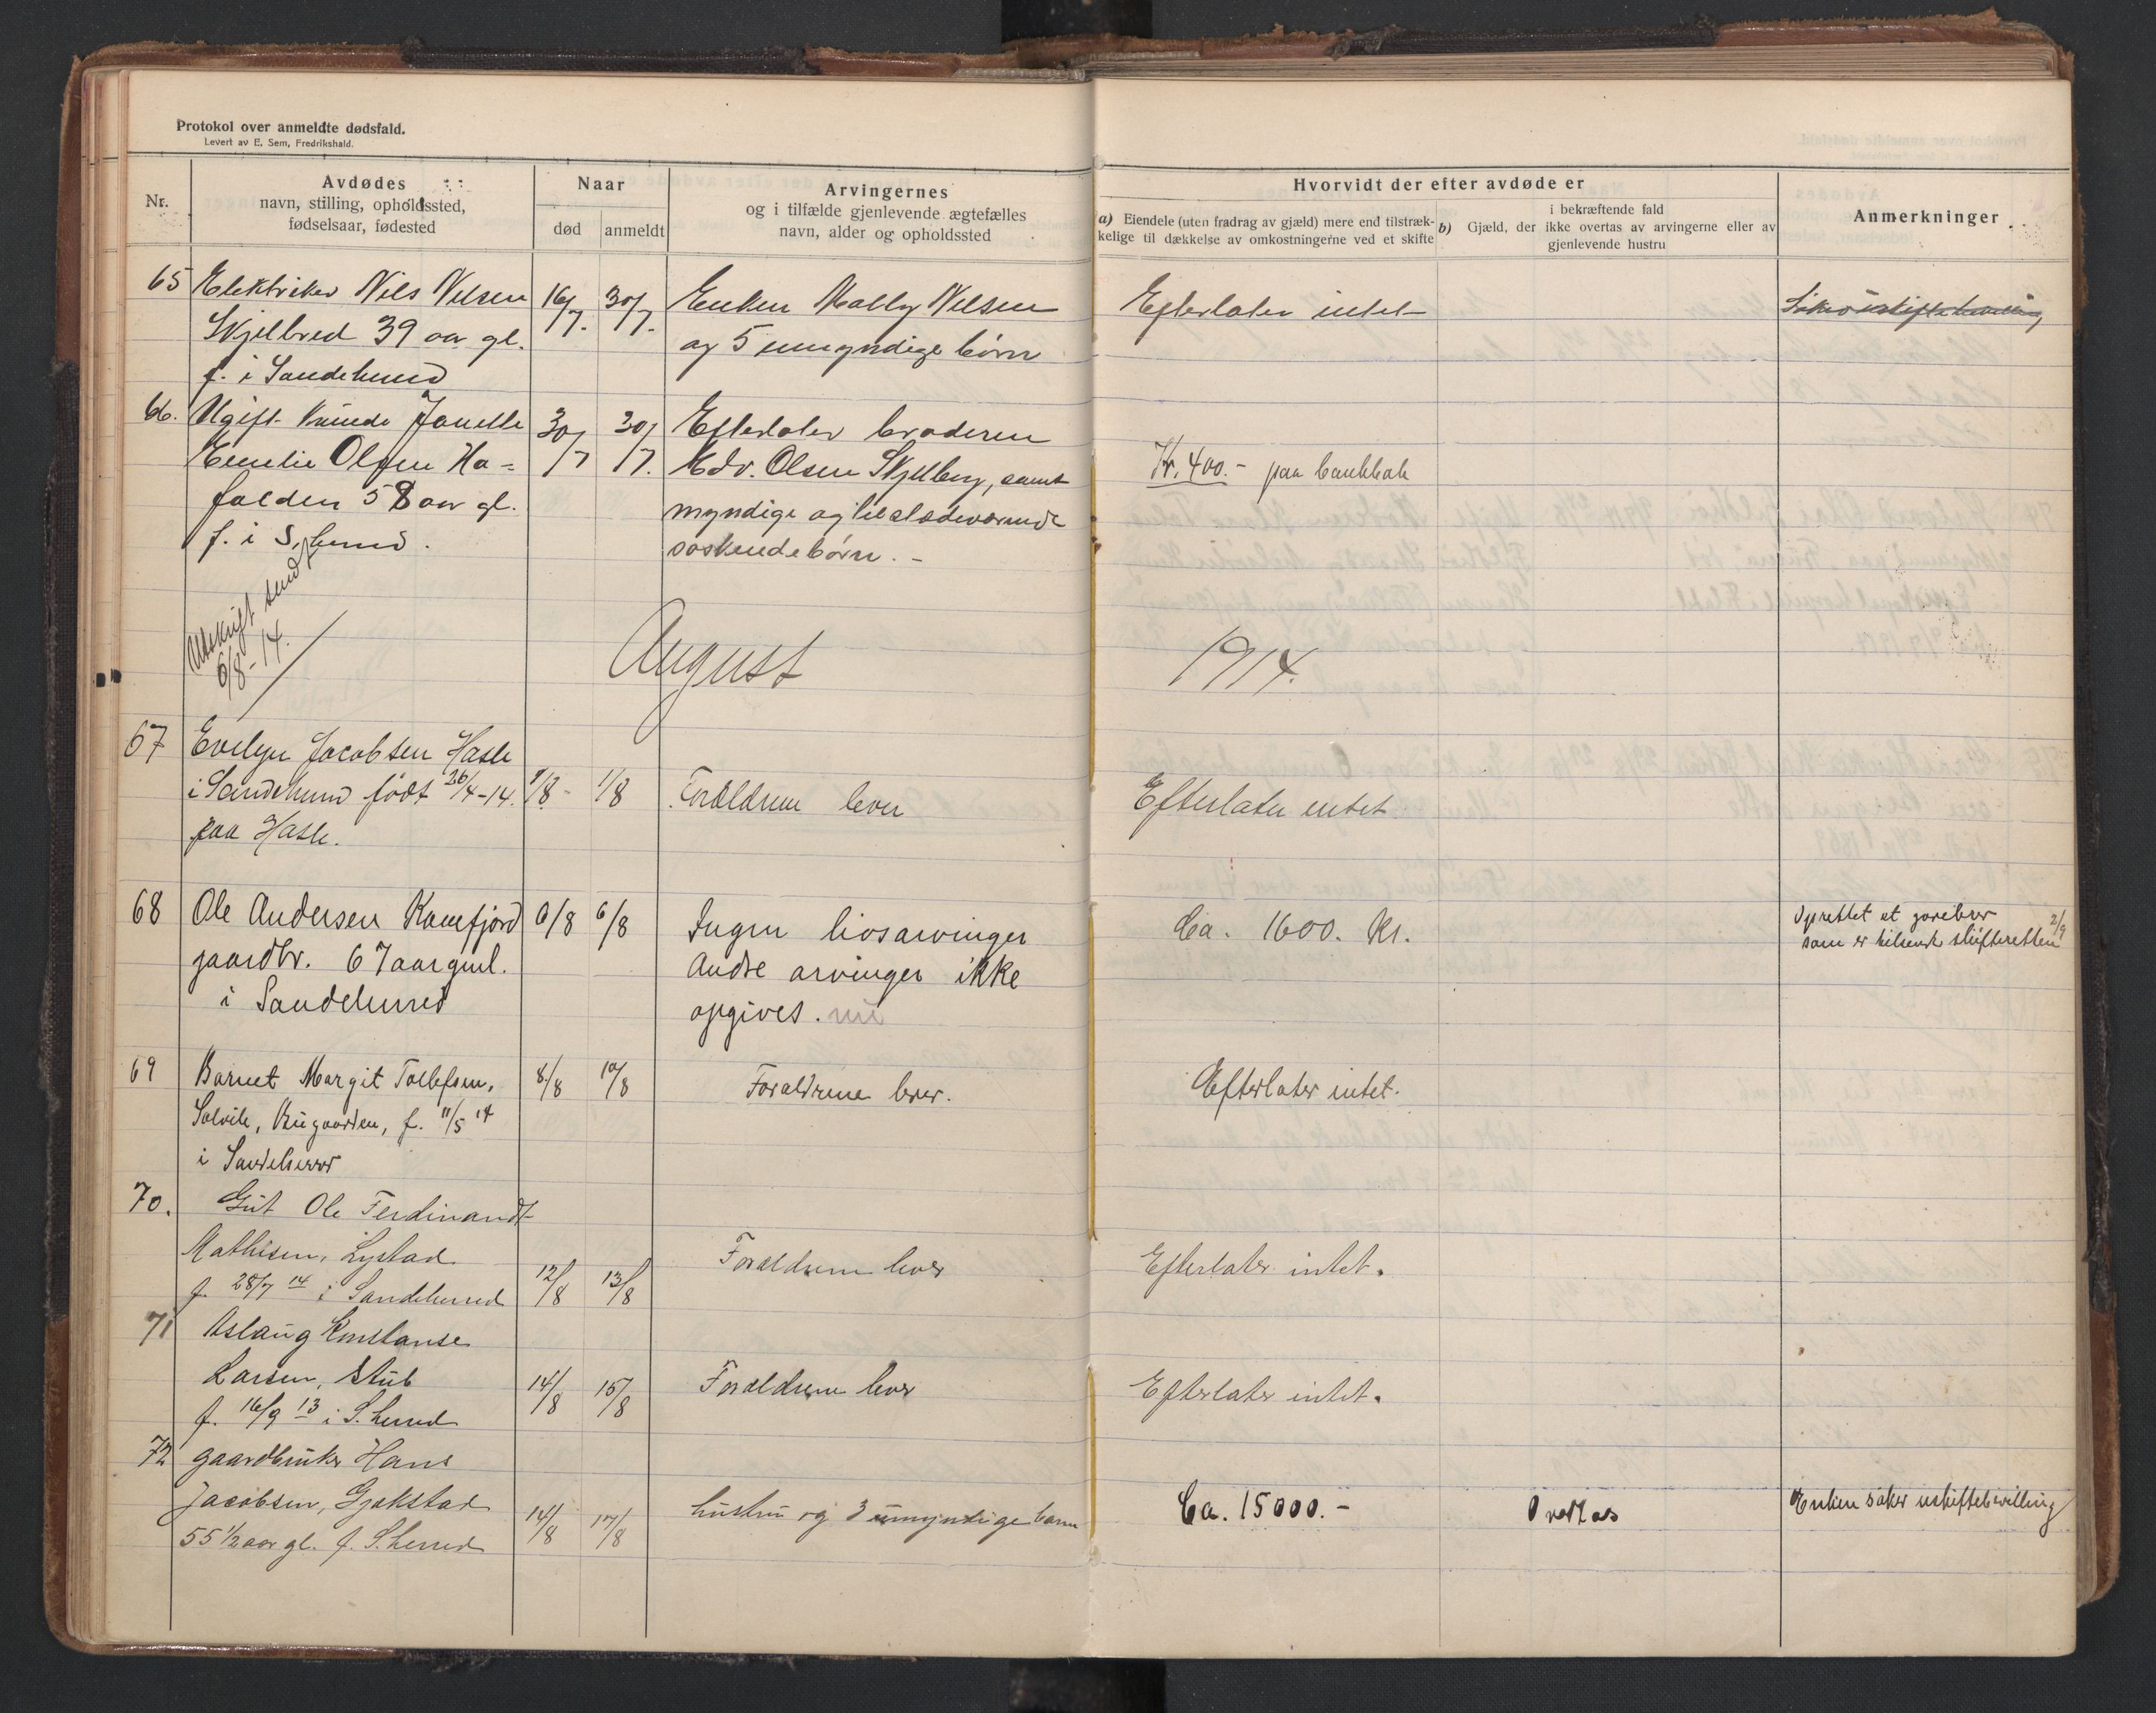 Protokol over anmeldte dødsfald.
Levert av E. Sem, Fredrikshald.
Nr.
Avdødes
navn, stilling, opholdssted,
fødselsaar, fødested
Naar
død
anmeldt
Arvingernes
og i tilfælde gjenlevende ægtefælles
navn, alder og opholdssted
Hvorvidt der efter avdøde er
a) Eiendele (uten fradrag av gjæld) mere end tilstræk-
kelige til dækkelse av omkostningerne ved et skifte
b) Gjæld, der
i bekræftende fald
ikke overtas av arvingerne eller av
gjenlevende hustru
Anmerkninger
65 Elektriker Nils Nilsen 16/7. 30/7. Enken Nally Nilsen Efterlater intet
Skjelbred 39 aar gl. og 5 umyndige børn
f. i Sandeherred
66. Ugift kvinde 30/7 30/7. Efterlater broderen
Emelie Olsen Ha= Edv. Olsen Skjelberg, samt Kr. 400.- paa bankbok
falden 58 aar gl. myndige og tilstedeværende
f. i S.herred. søskendebørn. -
Utskrift sendt
6/8-14.
August 1914.
67 Evelyn Jacobsen Hasle
i Sandeherred født 26/4-14. 1/8 1/8 Forældrene lever Efterlater intet
paa Hasle.
68 Ole Andersen Kamfjord 6/8 6/8 Ingen livsarvinger Ca. 1600. Kr. Oprettet et gavebrev 2/9
gaardbr. 67 aar gml. Andre arvinger ikke som er tilsendt skifteretten
i Sandeherred opgives.
69 Barnet Margit Tollefsen, 8/8 10/8 Forældrene lever. Efterlater intet.
Solvik, Bugaarden, f. 11/5 14
i Sandeherred
70. Gut Ole Ferdinandt
Mathisen, Lystad Forældrene lever Efterlater intet.
f. 28/7 14 i Sandeherred 12/8 13/8
71 Aslaug Konstanse
Larsen, Stub 14/8 15/8 Forældrene lever Efterlater intet.
f. 16/9 13 i S. herred
72 gaardbruker Hans
Jacobsen, Gjekstad 14/8 17/8 hustru og 3 umyndige barn Ca. 15000.- Overtas Enken søker uskiftebevilling
55 1/2 aar gl. f. S. herred